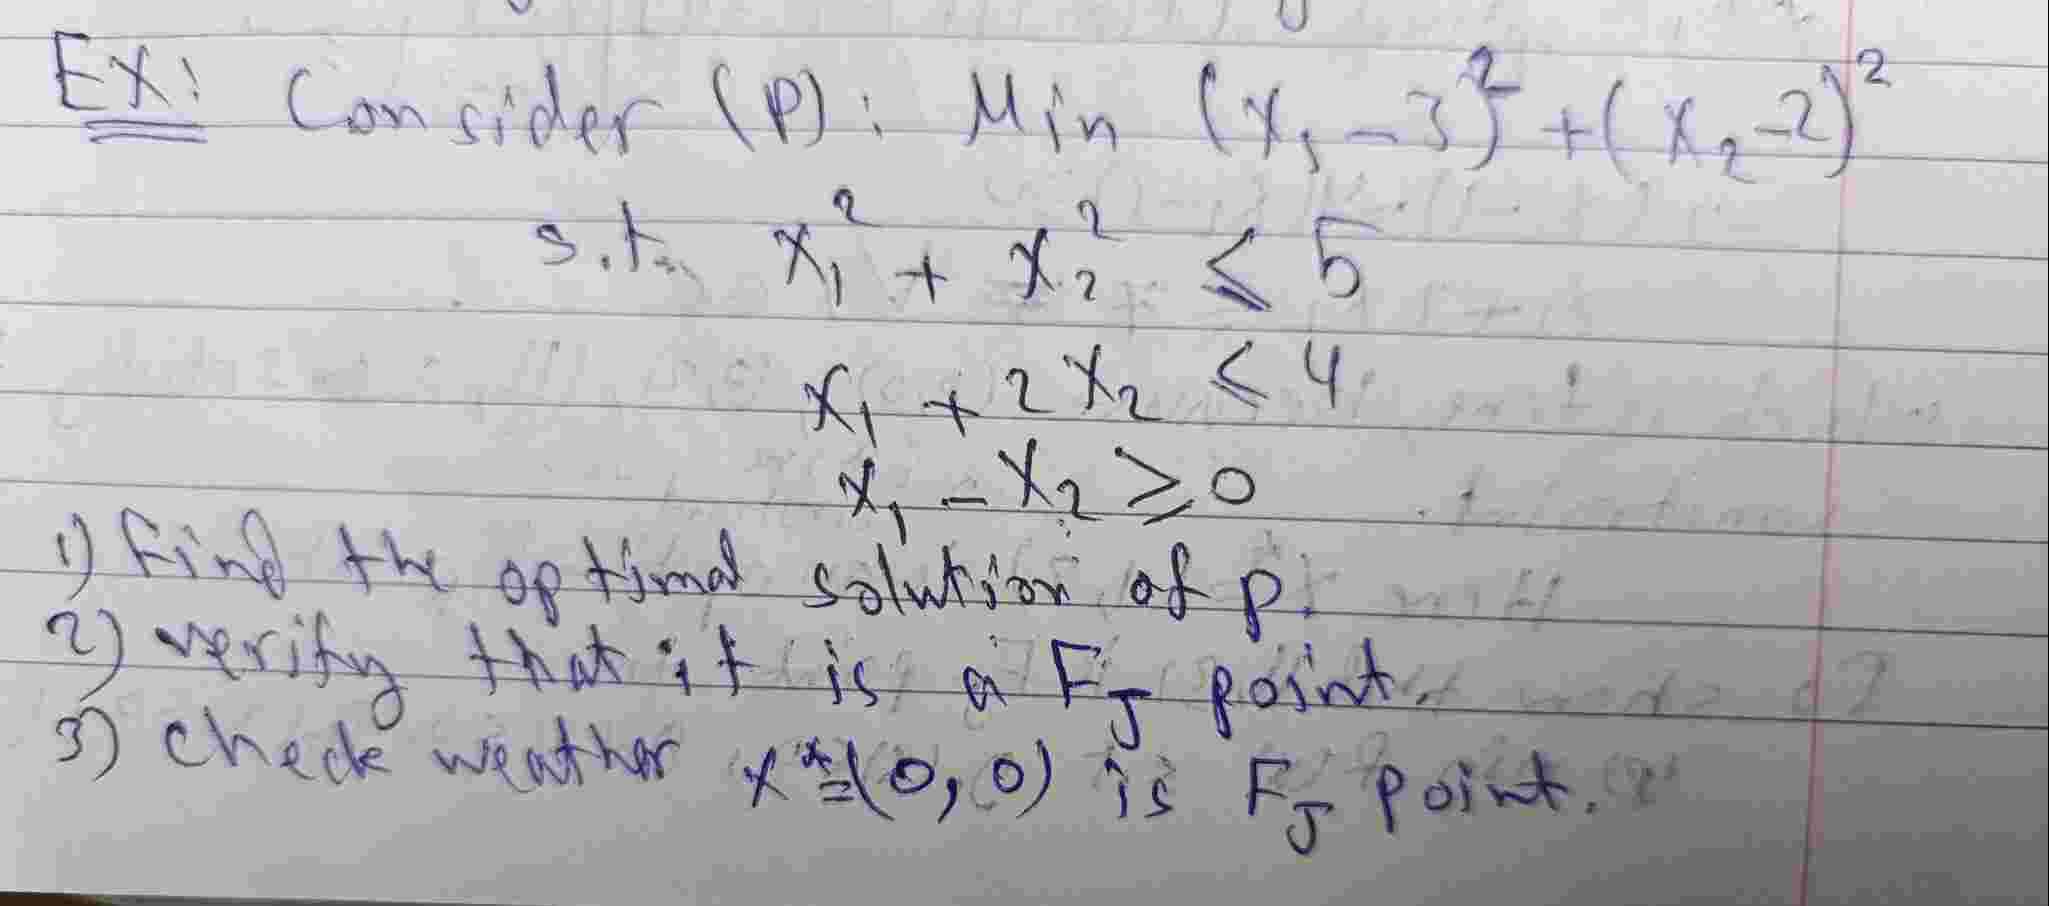 Ex: Consider (P): Min (x₁-3)² + (x₂-2)²
s.t. x₁² + x₂² ≤ 5
x₁ + 2x₂ ≤ 4
x₁ - x₂ ≥ 0
1) Find the optimal solution of P.
2) verify that it is a FJ point.
3) check weather x*=(0,0) is FJ point.